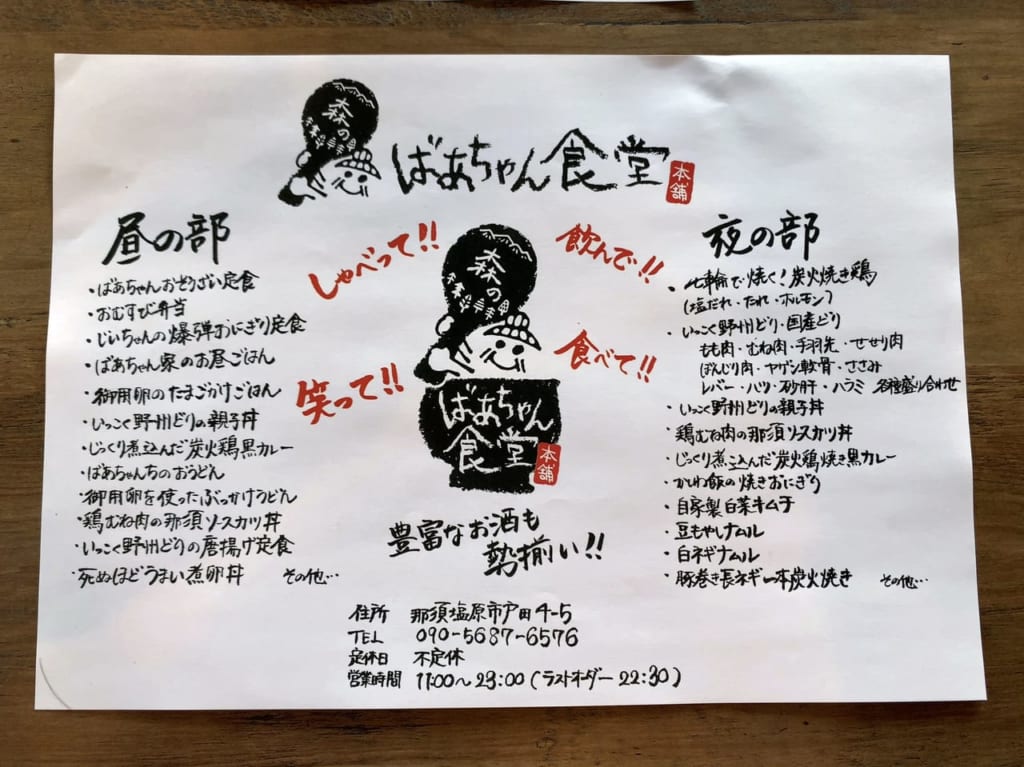 森の
ばあちゃん食堂
本舗
昼の部
・ばあちゃんおそうざい定食
・おむすび弁当
・じいちゃんの爆弾おにぎり定食
・ばあちゃん家のお昼ごはん
・御用卵のたまごかけごはん
・いっこく野州どりの親子丼
・じっくり煮込んだ炭火鶏黒カレー
・ばあちゃんちのおうどん
・御用卵を使ったぶっかけうどん
・鶏むね肉の那須ソースカツ丼
・いっこく野州どりの唐揚げ定食
・死ぬほどうまい煮卵丼 その他…
しゃべって!!
飲んで!!
笑って!!
食べて!!
森の
ばあちゃん
食堂
本舗
豊富なお酒も
勢揃い!!
夜の部
・七輪で焼く!炭火焼き鶏
(塩だれ・たれ・ホルモン)
・いっこく野州どり・国産どり
もも肉・むね肉・手羽先・せせり肉
ぼんじり肉・ヤゲン軟骨・ささみ
レバー・ハツ・砂肝・ハラミ 各種盛り合わせ
・いっこく野州どりの親子丼
・鶏むね肉の那須ソースカツ丼
・じっくり煮込んだ炭火鶏焼き黒カレー
・かしわ飯の焼きおにぎり
・自家製白菜キムチ
・豆もやしナムル
・白ネギナムル
・豚巻き長ネギ一本炭火焼き その他…
住所 那須塩原市戸田4-5
TEL 090-5687-6576
定休日 不定休
営業時間 11:00〜23:00(ラストオーダー22:30)